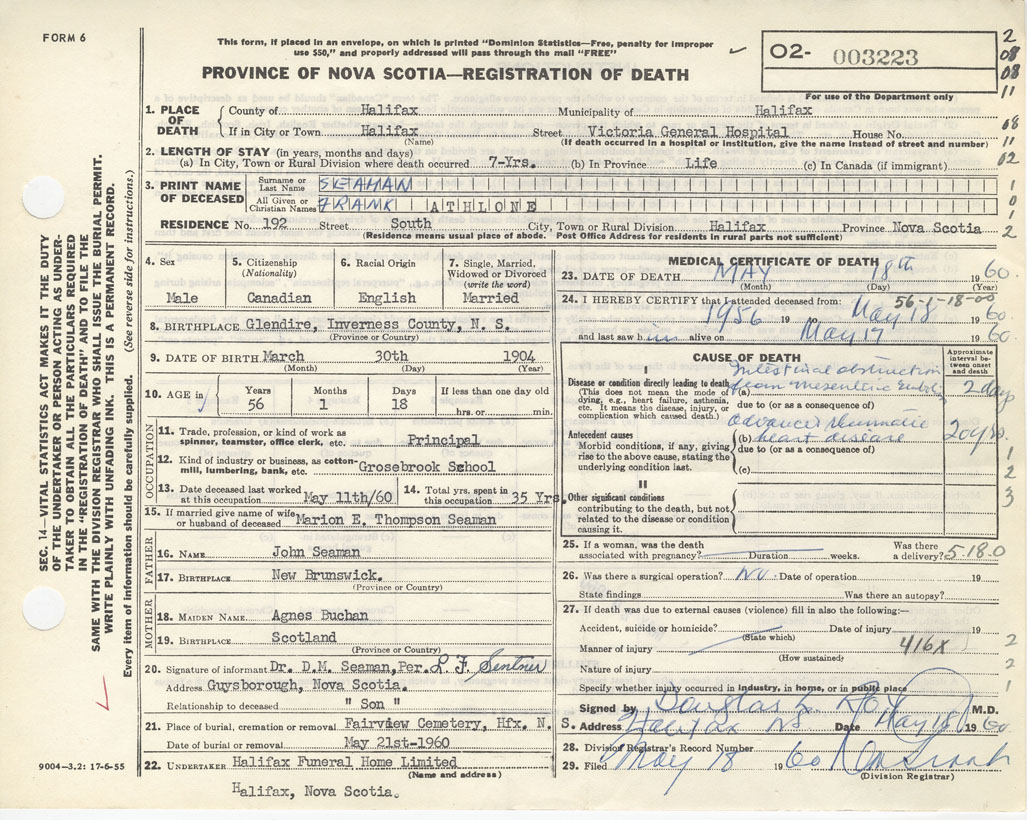 FORM 6
This form, if placed in an envelope, on which is printed "Dominion Statistics—Free, penalty for improper
use $50," and properly addressed will pass through the mail "FREE"
O2- 003223
PROVINCE OF NOVA SCOTIA—REGISTRATION OF DEATH
For use of the Department only
2
08
08
11
08
11
02
1
0
1
2
SEC. 14—VITAL STATISTICS ACT MAKES IT THE DUTY
OF THE UNDERTAKER OR PERSON ACTING AS UNDER-
TAKER TO OBTAIN ALL THE PARTICULARS REQUIRED
IN THE "REGISTRATION OF DEATH" AND TO FILE THE
SAME WITH THE DIVISION REGISTRAR WHO SHALL ISSUE THE BURIAL PERMIT.
WRITE PLAINLY WITH UNFADING INK. THIS IS A PERMANENT RECORD.
Every item of information should be carefully supplied. (See reverse side for instructions.)
1. PLACE OF DEATH
County of Halifax Municipality of Halifax
If in City or Town Halifax Street Victoria General Hospital House No.
(Name) (If death occurred in a hospital or institution, give the name instead of street and number)
2. LENGTH OF STAY (in years, months and days)
(a) In City, Town or Rural Division where death occurred 7-Yrs. (b) In Province Life (c) In Canada (if immigrant)
3. PRINT NAME OF DECEASED
Surname or Last Name SEAMAN
All Given or Christian Names FRANK ATHLONE
RESIDENCE No. 192 Street South City, Town or Rural Division Halifax Province Nova Scotia
(Residence means usual place of abode. Post Office Address for residents in rural parts not sufficient)
4. Sex
Male
5. Citizenship
(Nationality)
Canadian
6. Racial Origin
English
7. Single, Married,
Widowed or Divorced
(write the word)
Married
8. BIRTHPLACE Glendire, Inverness County, N. S.
(Province or Country)
9. DATE OF BIRTH March 30th 1904
(Month) (Day) (Year)
10. AGE in
Years Months Days If less than one day old
56 1 18 hrs. or min.
OCCUPATION
11. Trade, profession, or kind of work as
spinner, teamster, office clerk, etc. Principal
12. Kind of industry or business, as cotton-
mill, lumbering, bank, etc. Grosebrook School
13. Date deceased last worked
at this occupation May 11th/60
14. Total yrs. spent in
this occupation 35 Yrs.
15. If married give name of wife
or husband of deceased Marion E. Thompson Seaman
FATHER
16. NAME John Seaman
17. BIRTHPLACE New Brunswick.
(Province or Country)
MOTHER
18. MAIDEN NAME Agnes Buchan
19. BIRTHPLACE Scotland
(Province or Country)
20. Signature of informant Dr. D.M. Seaman, Per. L F. Sentner
Address Guysborough, Nova Scotia.
Relationship to deceased " Son "
21. Place of burial, cremation or removal Fairview Cemetery, Hfx. N. S.
Date of burial or removal May 21st-1960
22. UNDERTAKER Halifax Funeral Home Limited
(Name and address)
Halifax, Nova Scotia.
9004—3.2: 17-6-55
MEDICAL CERTIFICATE OF DEATH
23. DATE OF DEATH MAY 18th 1960.
(Month) (Day) (Year)
24. I HEREBY CERTIFY that I attended deceased from: 56-1-18-00
1956 19 to May 18 1960
and last saw him alive on May 17 1960
CAUSE OF DEATH
Approximate
interval be-
tween onset
and death
I
Disease or condition directly leading to death
(This does not mean the mode of
dying, e.g., heart failure, asthenia,
etc. It means the disease, injury, or
complication which caused death.)
Intestinal obstruction
(a) from mesenteric 2 days
due to (or as a consequence of)
Antecedent causes
Morbid conditions, if any, giving
rise to the above cause, stating the
underlying condition last.
advanced rheumatic
(b) heart disease 20 yrs.
due to (or as a consequence of)
(c)
II
Other significant conditions
contributing to the death, but not
related to the disease or condition
causing it.
1
2
3
25. If a woman, was the death
associated with pregnancy? Duration weeks. Was there
a delivery? 5.18.0
26. Was there a surgical operation? No Date of operation 19
State findings Was there an autopsy?
27. If death was due to external causes (violence) fill in also the following:—
Accident, suicide or homicide? Date of injury 19
(State which)
Manner of injury 416X
(How sustained)
Nature of injury
Specify whether injury occurred in industry, in home, or in public place
2
2
1
Signed by Douglas L. Roy M.D.
Address Halifax NS Date May 18 1960
28. Division Registrar's Record Number
29. Filed May 18 1960
(Division Registrar)